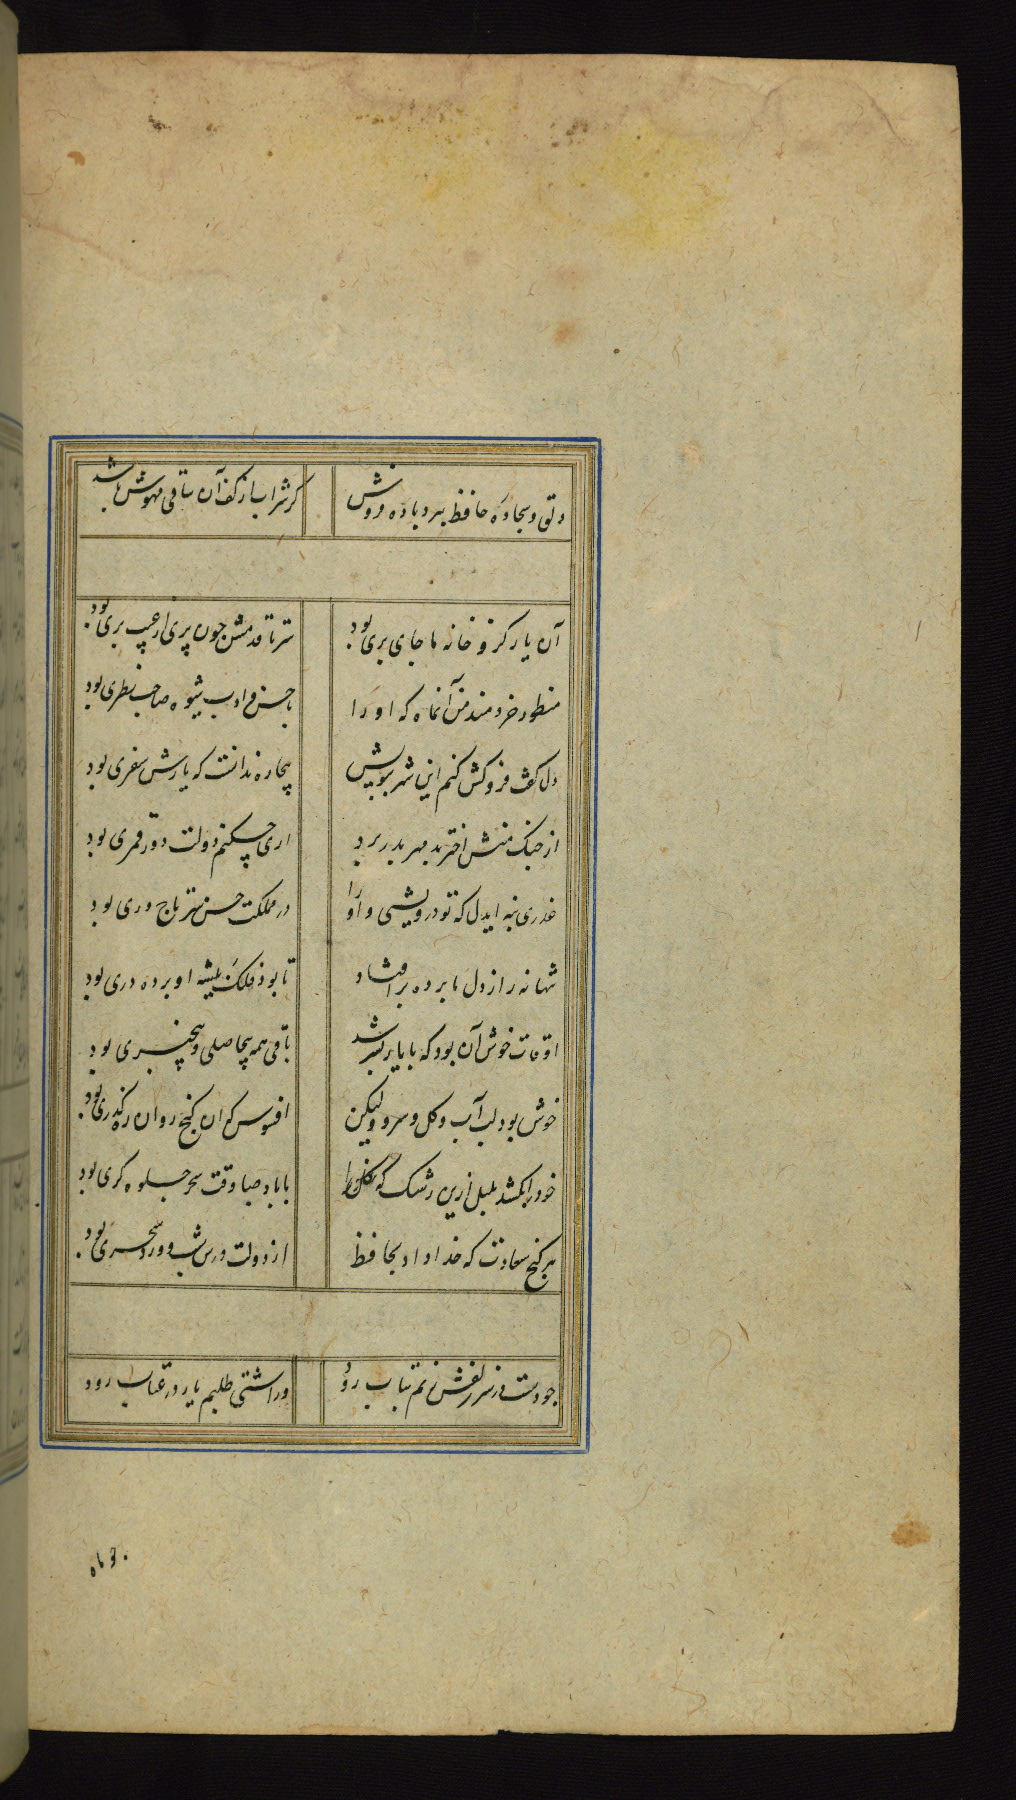 دلق و سجاده حافظ ببرد باده فروش
گر شراب از کف آن ساقی مهوش باشد
آن یار کزو خانه ما جای پری بود
سر تا قدمش چون پری از عیب بری بود
منظور خردمند من آن ماه که او را
با حسن و ادب شیوه صاحب نظری بود
دل گفت فروکش کنم این شهر ببویش
بیچاره ندانست که یارش سفری بود
از چنک منش اختر بد مهر بدر برد
اری چکنم دولت دور قمری بود
عذری بنه ایدل که تو درویشی و او را
در مملکت حسن سر تاج وری بود
تنها نه ز راز دل ما پرده برافتاد
تا بود فلک شیوه او پرده دری بود
اوقات خوش آن بود که با یار بسر شد
باقی همه بیحاصلی و بیخبری بود
خوش بود لب آب و گل و سرو ولیکن
افسوس که ان گنج روان رهگذری بود
خود را بکشد بلبل ازین رشک که گل را
با باد صبا وقت سحر جلوه گری بود
هر گنج سعادت که خدا داد بحافظ
از دولت درس شب و ورد سحری بود
چو دست در سر زلفش زنم بتاب رود
ور اشتی طلبم با سر عتاب رود